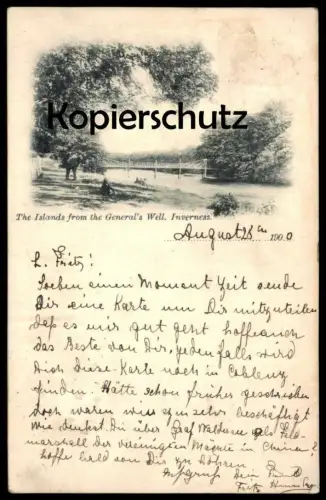 Kopierschutz
The Islands from the General's Well. Inverness.
August 28 1900
L. Fritz!
Soeben einen Moment Zeit sende
Dir eine Karte um Dir mitzuteilen
daß es mir gut geht hoffe auch
das Beste von Dir, jedenfalls wird
Dich diese Karte noch in Coblenz
finden. Hätte schon früher geschrieben
doch waren wir zu sehr beschäftigt
wie denkst Du über Graf Waldersee als Feld-
marschall der vereinigten Mächte in China?
hoffe bald von Dir zu hören
Dein Freund
Fritz